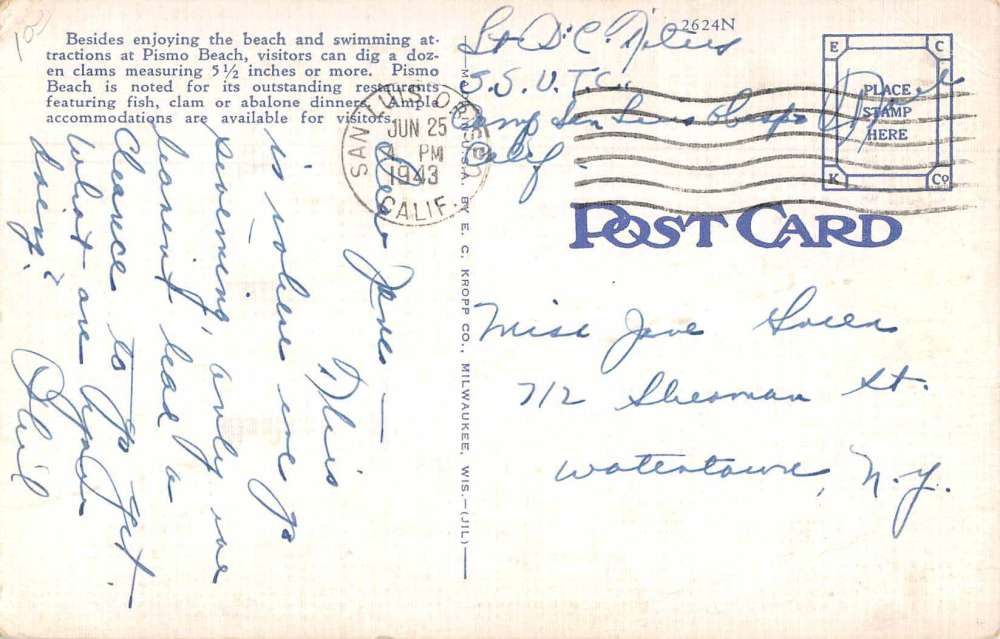 Besides enjoying the beach and swimming at-
tractions at Pismo Beach, visitors can dig a doz-
en clams measuring 5½ inches or more. Pismo
Beach is noted for its outstanding restaurants
featuring fish, clam or abalone dinners. Ample
accommodations are available for visitors.
Dear Jane —
This
is where we go
swimming, only we
haven't had a
chance to go yet.
What are you
doing?
Phil
MADE IN U.S.A. BY E. C. KROPP CO., MILWAUKEE, WIS.—(JIL)
2624N
S.S.U.T.C.
Camp San Luis Obispo
Calif
SAN LUIS OBISPO
JUN 25
4 PM
1943
CALIF.
E C
PLACE
STAMP
HERE
K Co
POST CARD
Miss Jane
712 Sherman St.
Watertown, N.Y.